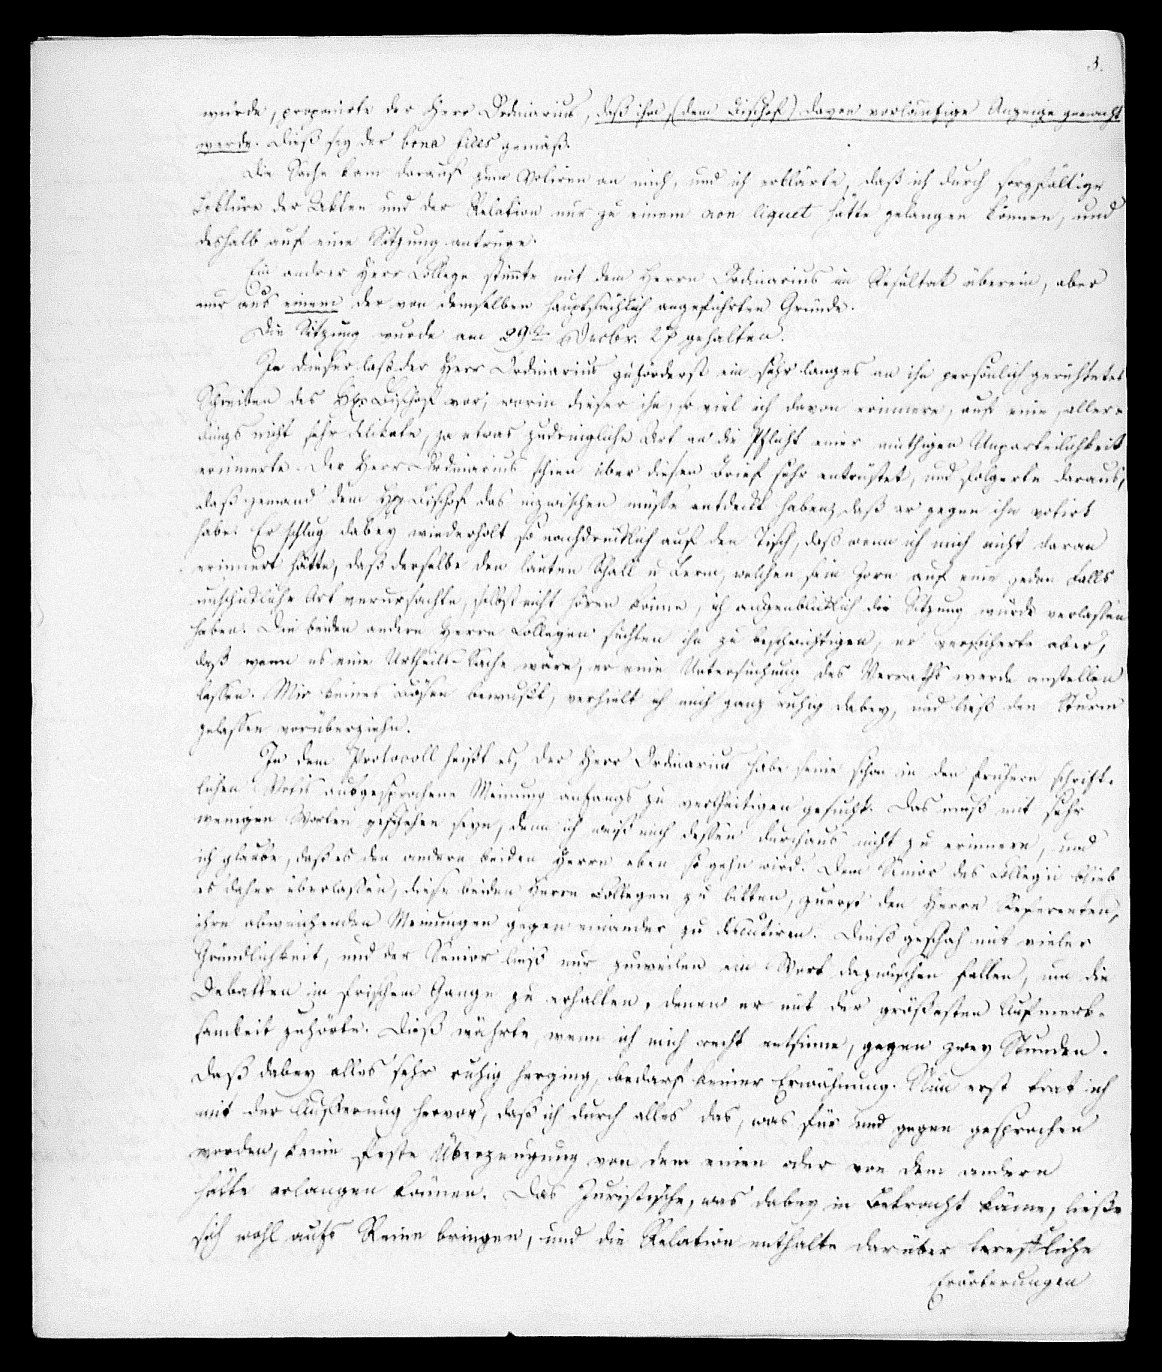 3.
würde, proponirte der Herr Ordinarius, daß ihm, (dem Bischof) davon vorläufige Anzeige gemacht
werde. Dieß sey der bona fides gemäß.
Die Sache kam darauf zum Votiren an mich, und ich erklärte, daß ich durch sorgfältige
Lektüre der Akten und der Relation nur zu einem non liquet hätte gelangen können, und
deshalb auf eine Sitzung antrüge.
Ein andrer Herr College stimmte mit dem Herrn Ordinarius im Resultat überein, aber
nur aus einem der von demselben hauptsächlich angeführten Gründe.
Die Sitzung wurde am 29. gehalten.
In dieser las der Herr Ordinarius zuförderst ein sehr langes an ihn persönlich gerichtetes
Schreiben des Bischof vor, worin dieser ihn, so viel ich davon erinnere, auf eine, aller-
dings nicht sehr delikate, ja etwas zudringliche Art an die Pflicht einer muthigen Unparteilichkeit
erinnerte. Der Herr Ordinarius schien über diesen Brief sehr entrüstet, und folgerte daraus,
daß jemand dem Bischof das inzwischen müsse entdeckt haben, daß er gegen ihn votirt
habe. Er schlug dabey wiederholt so nachdrücklich auf den Tisch, daß wenn ich mich nicht daran
erinnert hätte, daß derselbe den lauten Schall u Lerm, welchen sein Zorn auf eine jeden Falls
unschickliche Art verursachte, selbst nicht hören könne, ich augenblicklich die Sitzung würde verlassen
haben. Die beiden andern Herrn Collegen suchten ihn zu beschwichtigen, er versicherte aber,
daß wenn es eine Urtheils-Sache wäre, er eine Untersuchung des Verraths werde anstellen
lassen. Mir keines Bösen bewußt, verhielt ich mich ganz ruhig dabey, und ließ den Sturm
gelassen vorüberziehn.
In dem Protocoll heißt es, der Herr Ordinarius habe seine schon in den frühern schrift-
lichen Votis ausgesprochene Meinung anfangs zu vertheidigen gesucht. Das muß mit sehr
wenigen Worten geschehen seyn, denn ich weiß mich dessen durchaus nicht zu erinnern, und
ich glaube, daß es den andern beiden Herrn eben so gehn wird. Dem Senior des Collegii blieb
es daher überlassen, diese beiden Herrn Collegen zu bitten, zuerst den Herrn Referenten,
ihre abweichenden Meinungen gegen einander zu discutiren. Dieß geschah mit vieler
Gründlichkeit, und der Senior ließ nur zuweilen ein Wort dazwischen fallen, um die
Debatten im frischem Gange zu erhalten, denen er mit der größesten Aufmerk-
samkeit zuhörte. Dieß währte, wenn ich mich recht entsinne, gegen zwey Stunden.
Daß dabey alles sehr ruhig herging, bedarf keiner Erwähnung. Nun erst trat ich
mit der Äußerung hervor, daß ich durch alles das, was für und gegen gesprochen
worden, keine feste Überzeugung von dem einen oder von dem andern
hätte erlangen können. Das Juristische, was dabey in Betracht käme, ließe
sich wohl aufs Reine bringen, und die Relation enthalte darüber treffliche
Erörterungen